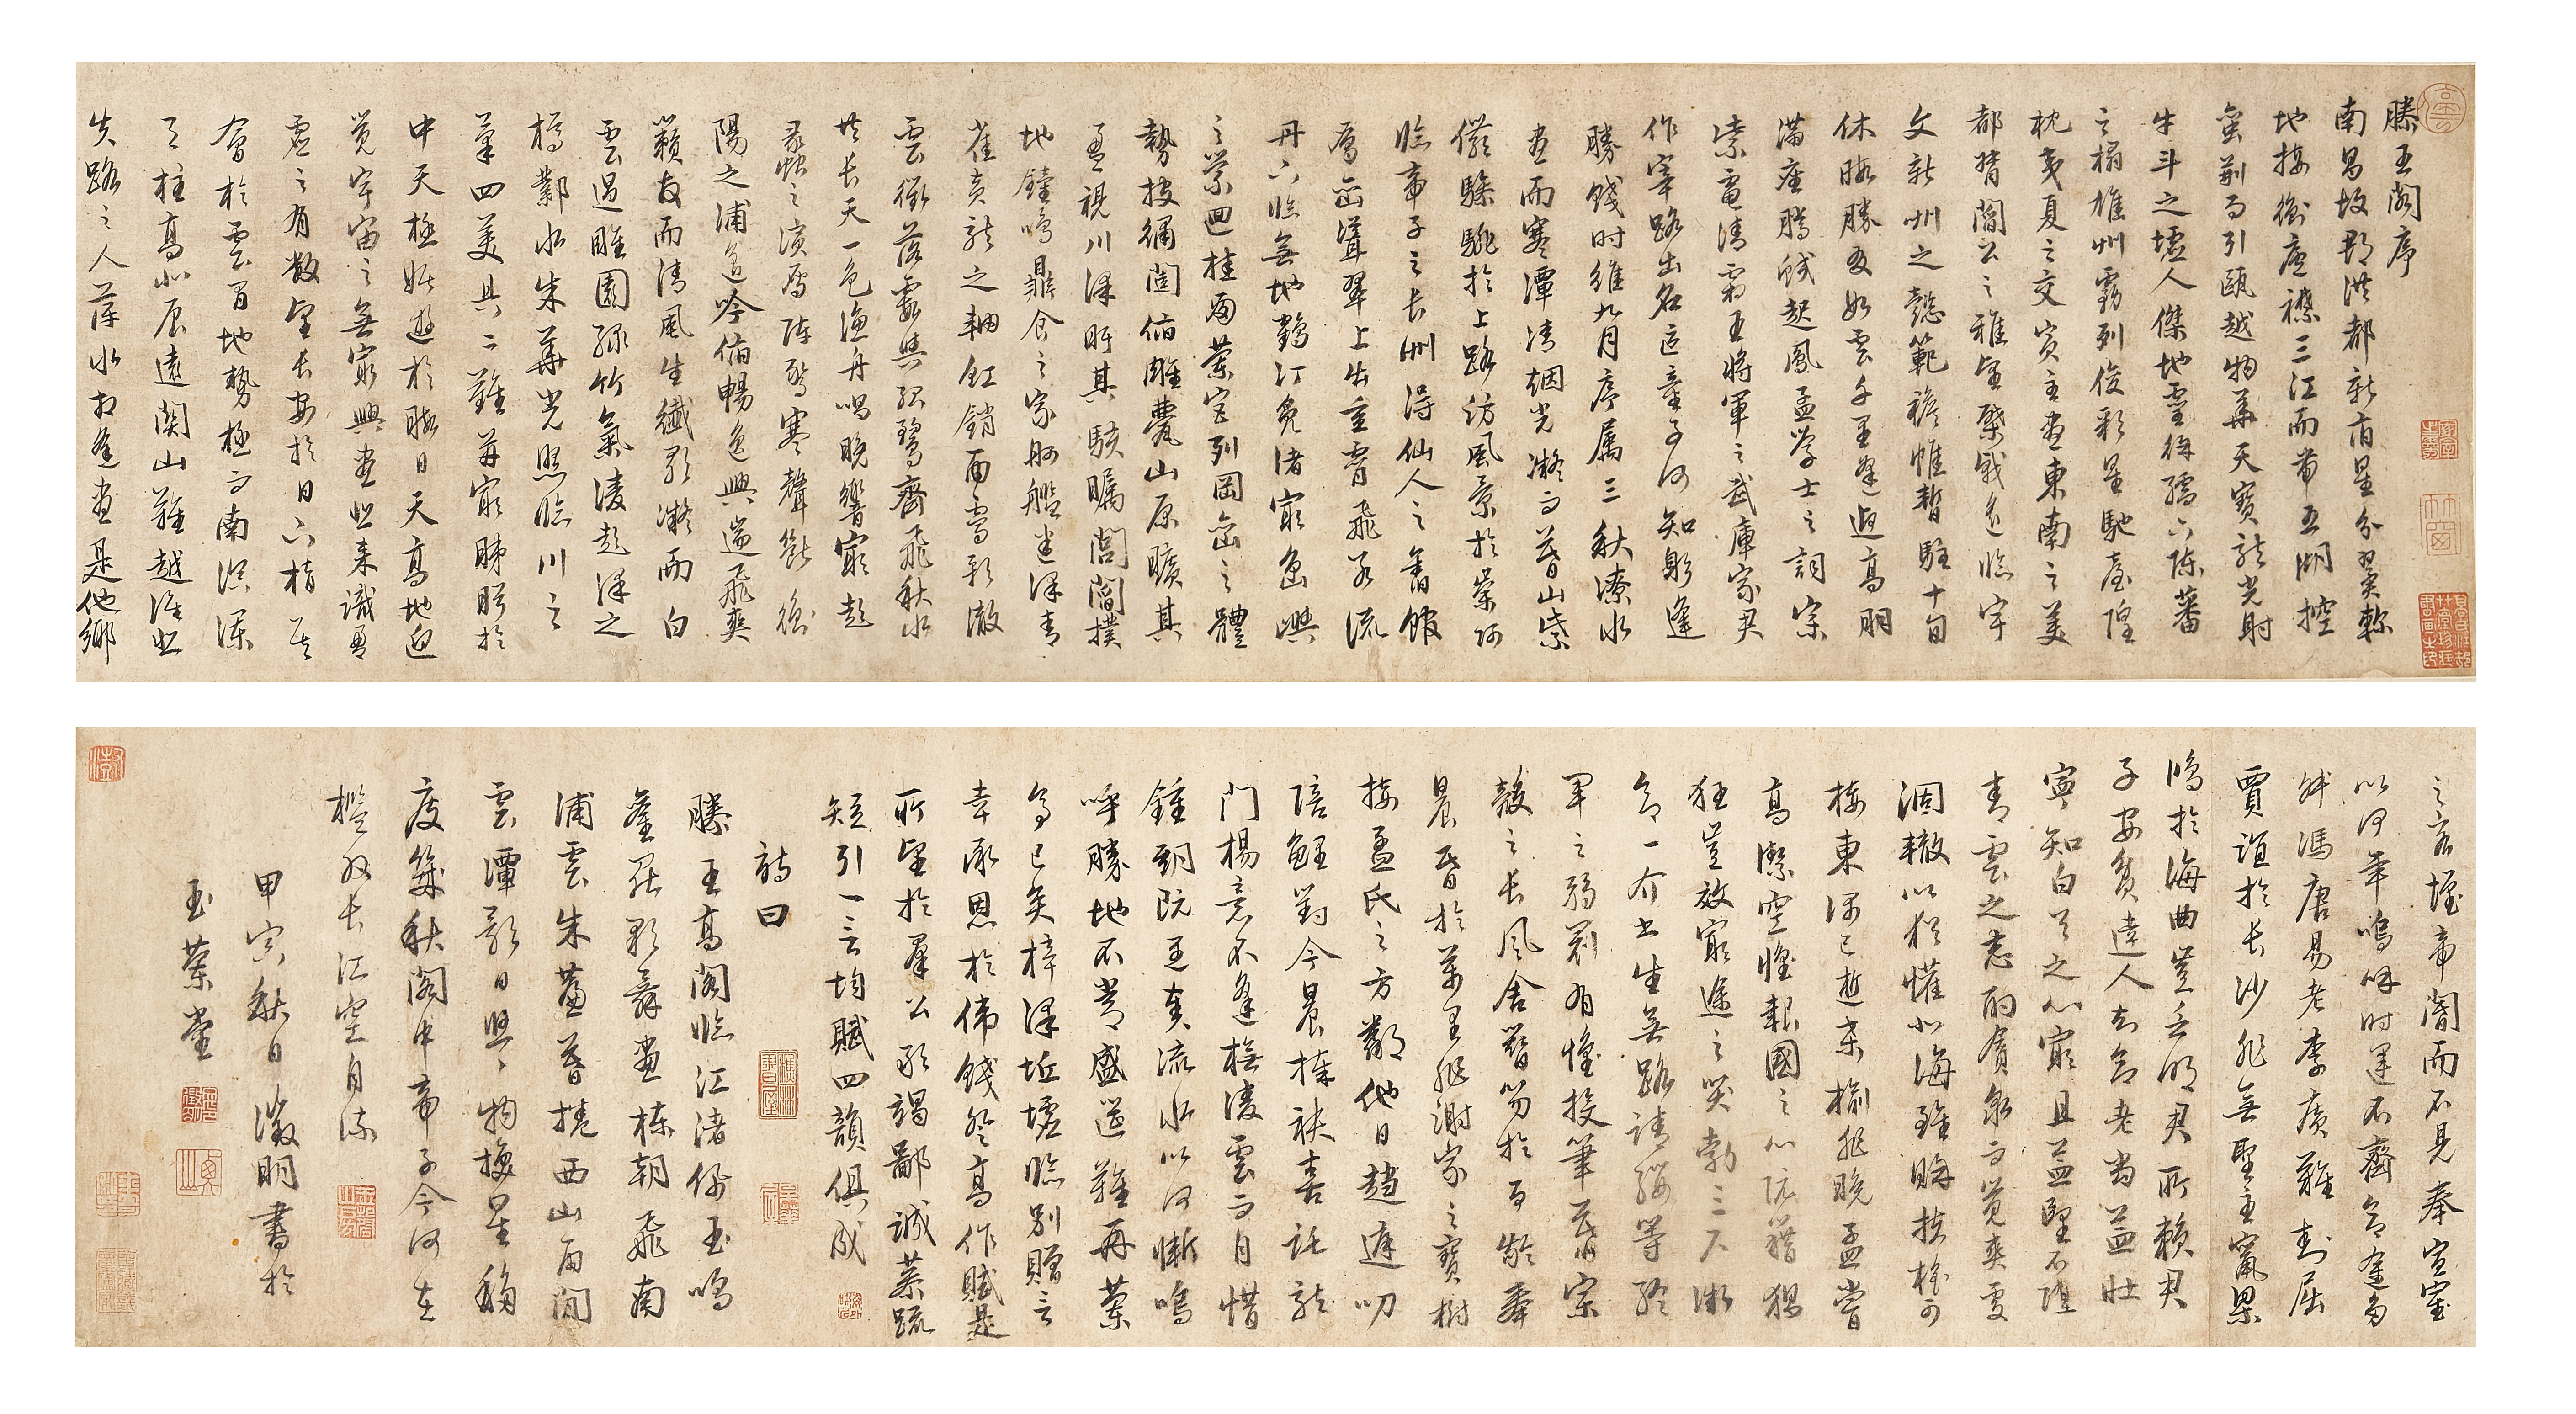 滕王閣序
南昌故郡洪都新府星分翼軫
地接衡廬襟三江而帶五湖控
蠻荊而引甌越物華天寶龍光射
牛斗之墟人傑地靈徐孺下陳蕃
之榻雄州霧列俊彩星馳臺隍
枕夷夏之交賓主盡東南之美
都督閻公之雅望棨戟遙臨宇
文新州之懿範襜帷暫駐十旬
休暇勝友如雲千里逢迎高朋
滿座騰蛟起鳳孟學士之詞宗
紫電清霜王將軍之武庫家君
作宰路出名區童子何知躬逢
勝餞時維九月序屬三秋潦水
盡而寒潭清烟光凝而暮山紫
儼驂騑於上路訪風景於崇阿
臨帝子之長洲得仙人之舊館
層巒聳翠上出重霄飛閣流
丹下臨無地鶴汀鳧渚窮島嶼
之縈迴桂殿蘭宮列岡巒之體
勢披繡闥俯雕甍山原曠其
盈視川澤盱其駭矚閭閻撲
地鐘鳴鼎食之家舸艦迷津青
雀黃龍之軸虹銷雨霽彩徹
雲衢落霞與孤鶩齊飛秋水
共長天一色漁舟唱晚響窮彭
蠡之濱雁陣驚寒聲斷衡
陽之浦遙吟俯暢逸興遄飛爽
籟發而清風生纖歌凝而白
雲遏睢園綠竹氣凌彭澤之
樽鄴水朱華光照臨川之
筆四美具二難并窮睇眄於
中天極娛遊於暇日天高地迥
覺宇宙之無窮興盡悲來識盈
虛之有數望長安於日下指吳
會於雲間地勢極而南溟深
天柱高北辰遠關山難越誰悲
失路之人萍水相逢盡是他鄉
之客懷帝閽而不見奉宣室
以何年嗚呼時運不齊命途多
舛馮唐易老李廣難封屈
賈誼於長沙非無聖主竄梁
鴻於海曲豈乏明君所賴君
子安貧達人知命老當益壯
寧知白首之心窮且益堅不墜
青雲之志酌貪泉而覺爽處
涸轍以猶懽北海雖賒扶搖可
接東隅已逝桑榆非晚孟嘗
高潔空懷報國之心阮籍猖
狂豈效窮途之哭勃三尺微
命一介書生無路請纓等終
軍之弱冠有懷投筆慕宗
愨之長風舍簪笏於百齡奉
晨昏於萬里非謝家之寶樹
接孟氏之芳鄰他日趨庭叨
陪鯉對今晨捧袂喜託龍
門楊意不逢撫凌雲而自惜
鍾期既遇奏流水以何慚嗚
呼勝地不常盛筵難再蘭
亭已矣梓澤坵墟臨別贈言
幸承恩於偉餞登高作賦是
所望於羣公敢竭鄙誠恭疏
短引一言均賦四韻俱成
詩曰
滕王高閣臨江渚佩玉鳴
鸞罷歌舞畫棟朝飛南
浦雲朱簾暮捲西山雨閒
雲潭影日悠丶物換星移
度幾秋閣中帝子今何在
檻外長江空自流
甲寅秋日徵明書於
玉蘭堂